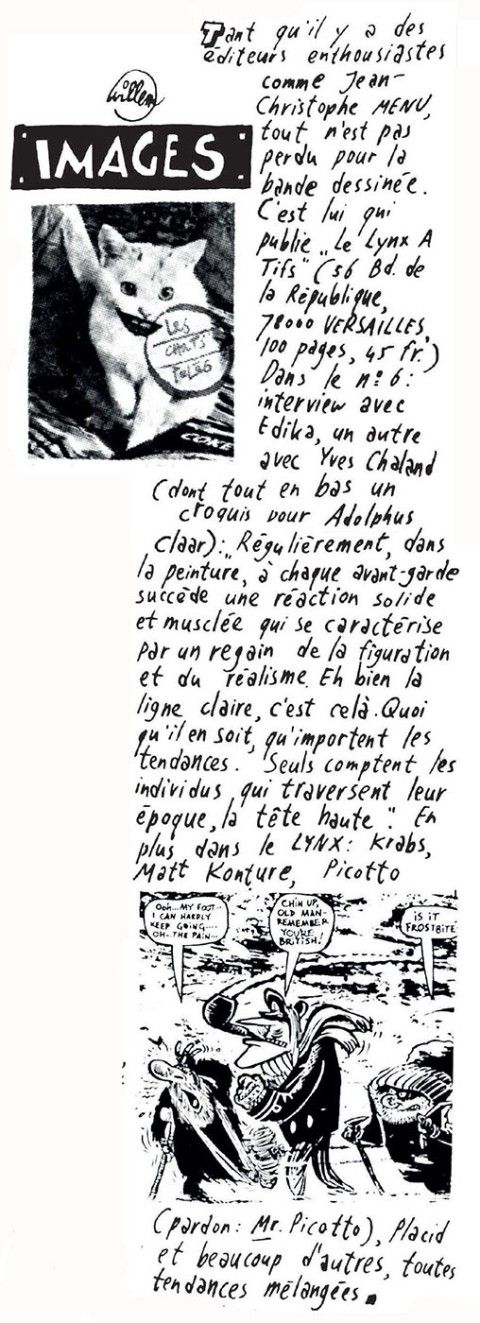 willem
IMAGES
Tant qu'il y a des
éditeurs enthousiastes
comme Jean-
Christophe MENU,
tout n'est pas
perdu pour la
bande dessinée.
C'est lui qui
publie „Le Lynx A
Tifs" (56 Bd. de
la République,
78000 VERSAILLES,
100 pages, 45 fr.)
Dans le nº 6:
interview avec
Edika, un autre
avec Yves Chaland
LES
CHATS
(dont tout en bas un
croquis pour Adolphus
Claar): „Régulièrement, dans
la peinture, à chaque avant-garde
succède une réaction solide
et musclée qui se caractérise
par un regain de la figuration
et du réalisme. Eh bien la
ligne claire, c'est celà. Quoi
qu'il en soit, qu'importent les
tendances. Seuls comptent les
individus qui traversent leur
époque, la tête haute". En
plus dans le LYNX: Krabs,
Matt Konture, Picotto
OOH...MY FOOT..
I CAN HARDLY
KEEP GOING....
OH-THE PAIN...
CHIN UP,
OLD MAN-
REMEMBER
YOU'RE
BRITISH!
IS IT
FROSTBITE
(pardon: Mr. Picotto), Placid
et beaucoup d'autres, toutes
tendances mélangées.